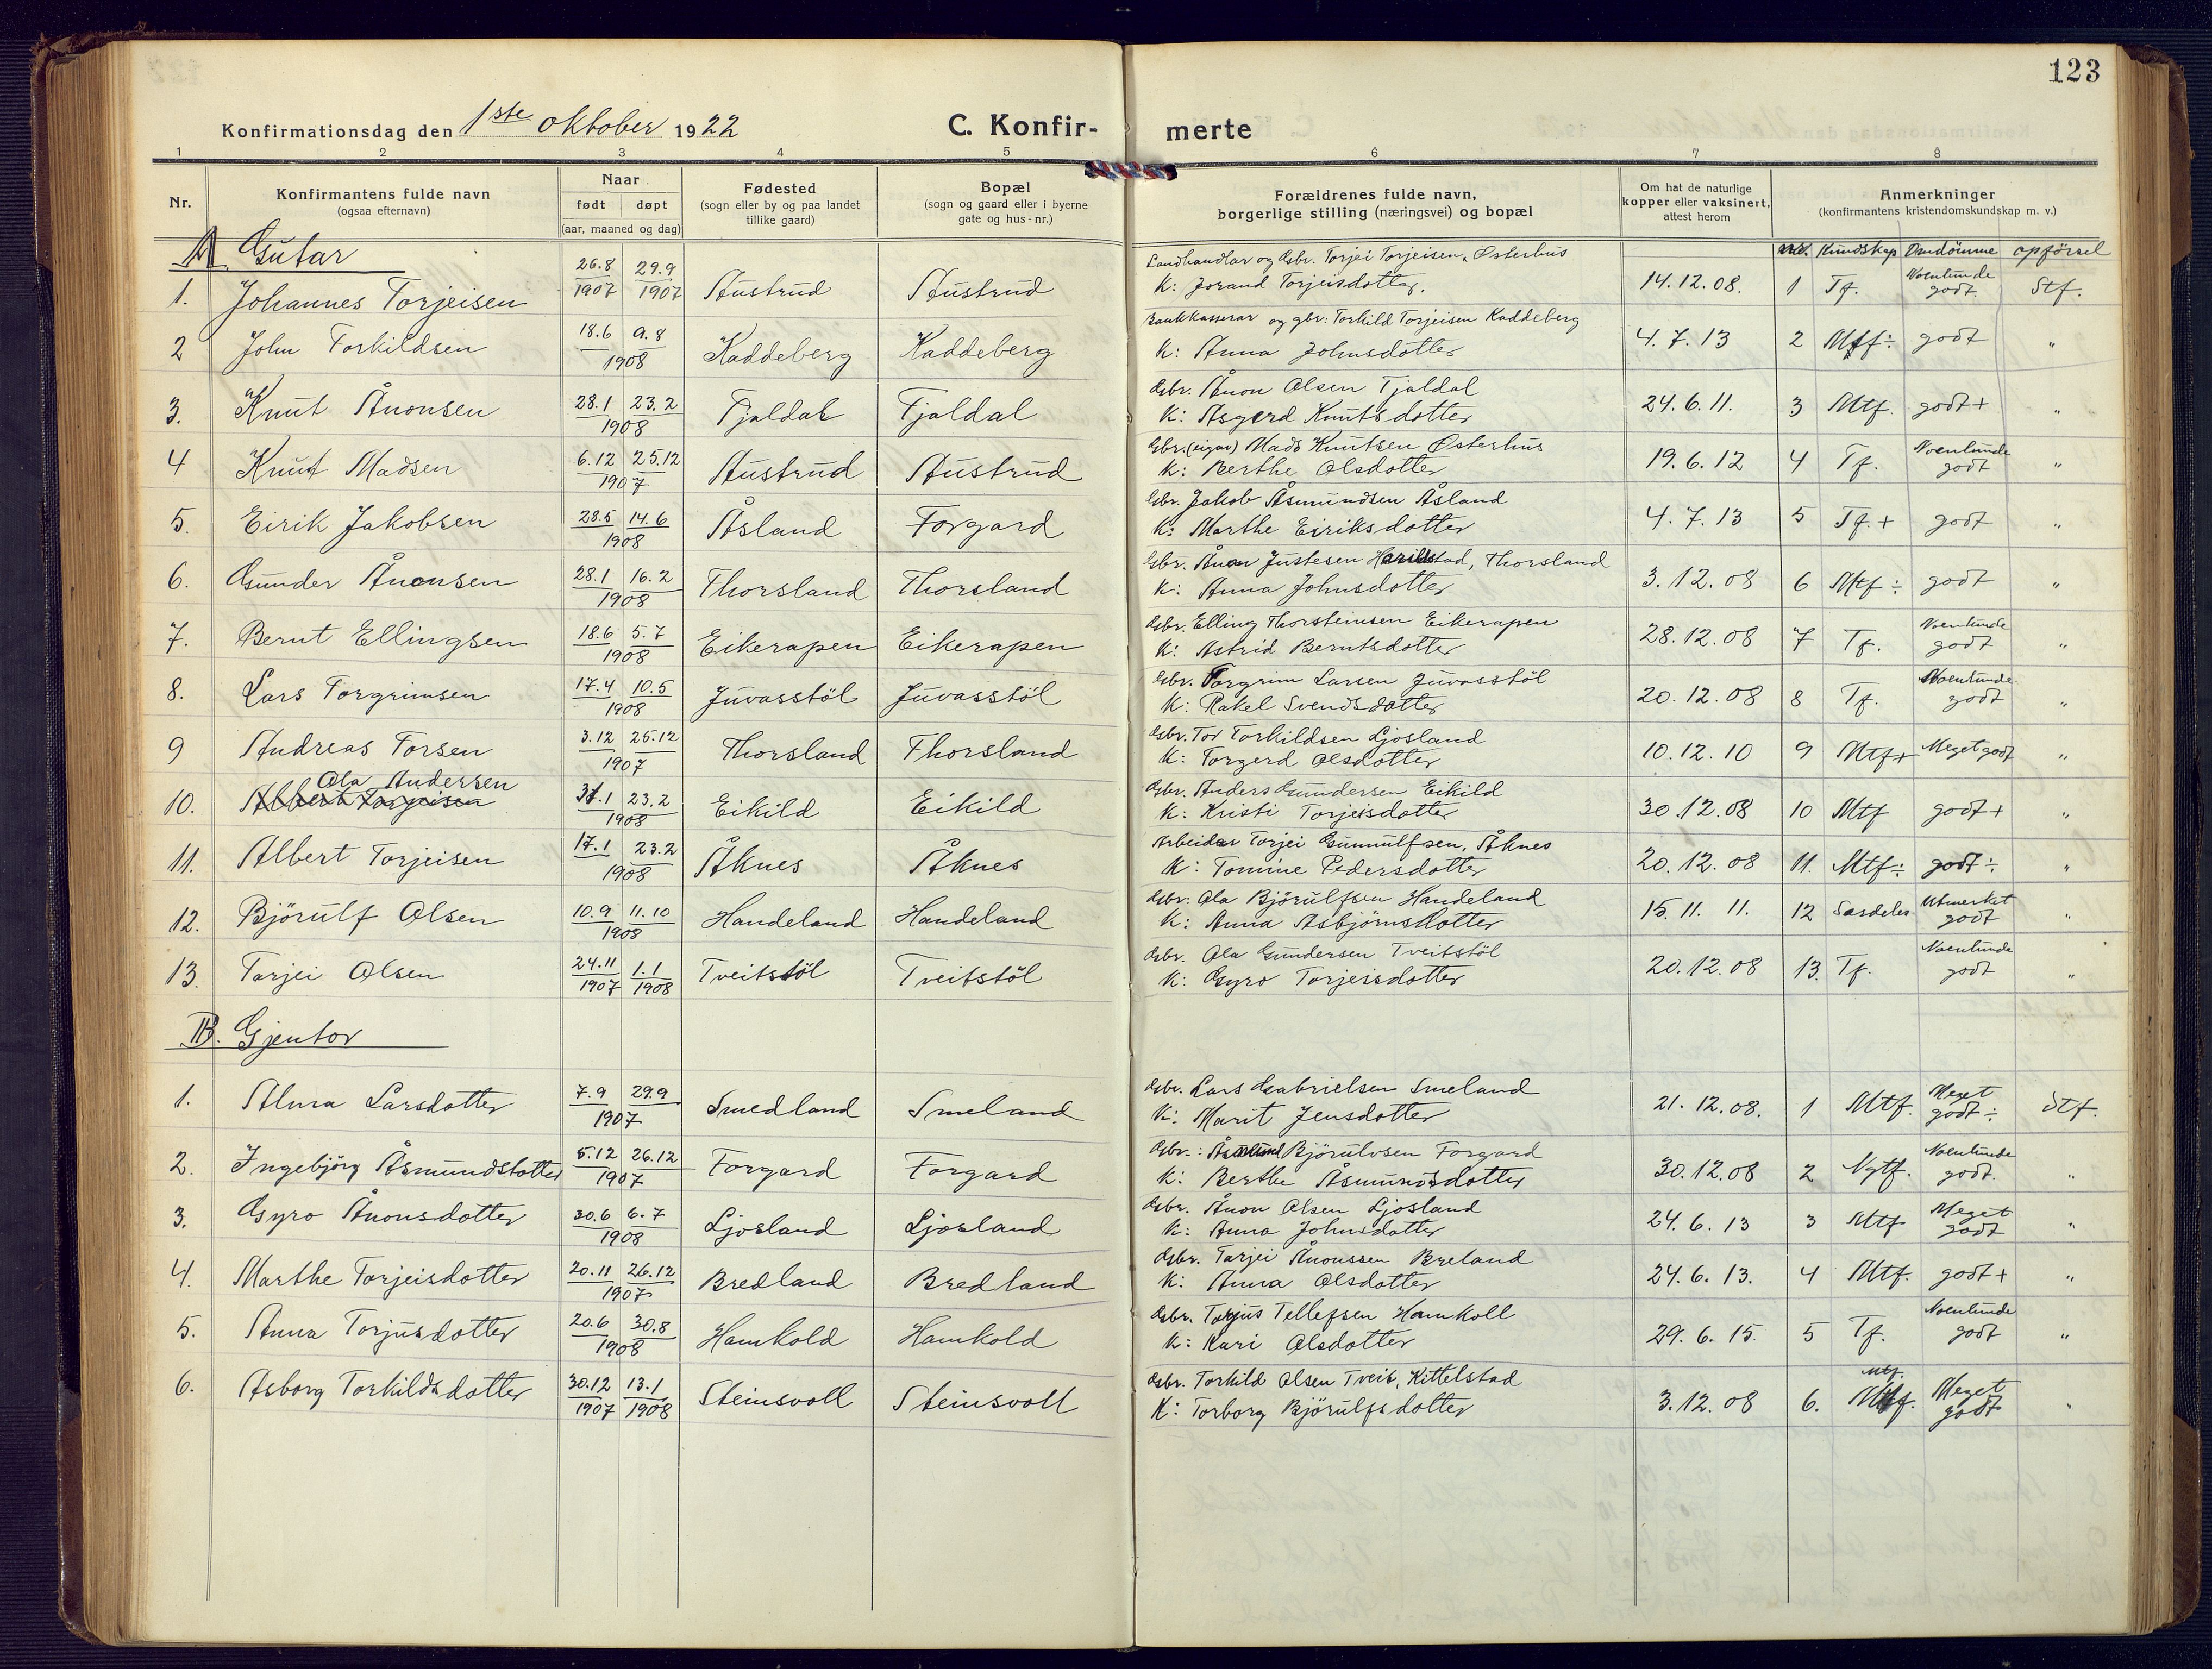 123
Konfirmationsdag den 1ste oktober 1922 C. Konfir- merte
1 2 3 4 5 6 7 8
Nr. Konfirmantens fulde navn (ogsaa efternavn) Naar født døpt (aar, maaned og dag) Fødested (sogn eller by og paa landet tillike gaard) Bopæl (sogn og gaard eller i byerne gate og hus-nr.) Forældrenes fulde navn, borgerlige stilling (næringsvei) og bopæl Om hat de naturlige kopper eller vaksinert, attest herom Anmerkninger (konfirmantens kristendomskundskap m. v.)
A. Gutar
Kundskap Omdömme opförsel
Landhandlar og Gbr. Torjei Torjeisen, Østerhus
1. Johannes Torjeisen 26.8 1907 29.9 1907 Austrud Austrud K: Jorand Torjeisdotter. 14.12.08. 1 Tf. Noenlunde godt. Stf.
Bankkasserar og gbr: Torkild Torjeisen Kaddeberg
2 John Torkildsen 18.6 9.8 1908 Kaddeberg Kaddeberg K: Anna Johnsdotter 4.7.13 2 Mtf÷ godt "
Gbr. Ånon Olsen Tjaldal
3. Knut Ånonsen 28.1 23.2 1908 Tjaldal Tjaldal K: Asgerd Knutsdotter 24.6.11. 3 Mtf. godt+ "
Gbr. (eigar) Mads Knutsen Østerhus
4 Knut Madsen 6.12 25.12 1907 Austrud Austrud K: Berthe Olsdotter 19.6.12 4 Tf. Noenlunde godt "
Gbr. Jakob Åsmundsen Åsland
5. Eirik Jakobsen 28.5 14.6 1908 Åsland Forgard K: Marthe Eiriksdotter 4.7.13 5 Tf.+ godt "
Gbr. Ånon Justesen Thorsland
6. Gunder Ånonsen 28.1 16.2 1908 Thorsland Thorsland K: Anna Johnsdotter 3.12.08 6 Mtf÷ godt "
Gbr. Elling Thorsteinsen Eikerapen
7. Bernt Ellingsen 18.6 5.7 1908 Eikerapen Eikerapen K: Astrid Berntsdotter 28.12.08 7 Tf. Noenlunde godt "
Gbr. Torgrim Larsen Juvasstöl
8. Lars Torgrimsen 17.4 10.5 1908 Juvasstöl Juvasstöl K: Rakel Svendsdotter 20.12.08 8 Tf. Noenlunde godt "
Gbr. Tor Torkildsen Ljosland
9 Andreas Torsen 3.12 25.12 1907 Thorsland Thorsland K: Torgerd Olsdotter 10.12.10 9 Mtf+ Meget godt "
Ola Andersen Gbr. Anders Gundersen Eikild
10. Albert Torjeisen 31.1 23.2 1908 Eikild Eikild K: Kristi Torjeisdotter 30.12.08 10 Mtf godt+ "
Arbeidar Torjei Gunnulfsen, Åknes
11. Albert Torjeisen 17.1 23.2 1908 Åknes Åknes K: Tomine Pedersdotter 20.12.08 11. Mtf÷ godt÷ "
Gbr. Ola Björulfsen Handeland
12. Björulf Olsen 10.9 11.10 1908 Handeland Handeland K: Anna Asbjörnsdotter 15.11.11. 12 Særdeles Utmerket godt "
Gbr. Ola Gundersen Tveitstöl
13. Tarjei Olsen 24.11 1907 1.1 1908 Tveitstöl Tveitstöl K: Gyro Torjeisdotter 20.12.08 13. Tf. Noenlunde godt "
B. Gjentor
Gbr. Lars Gabrielsen Smeland
1. Alma Larsdotter 7.9 29.9 1907 Smedland Smeland K: Marit Jensdotter 21.12.08. 1 Mtf. Meget godt÷ Stf.
Gbr.: Åsmund Björulvsen Forgard
2. Ingebjörg Åsmundsdotter 5.12 26.12 1907 Forgard Forgard K: Berthe Åsmundsdotter 30.12.08 2 Ngtf. Noenlunde godt. "
Gbr. Ånon Olsen Ljosland
3. Gyro Ånonsdotter 30.6 6.7 1908 Ljosland Ljosland K: Anna Johnsdatter 24.6.13 3 Mtf Meget godt "
Gbr. Tarjei Ånonssen Breland
4. Marthe Torjeisdotter 20.11 26.12 1907 Bredland Bredland K: Anna Olsdotter 24.6.13. 4 Mtf. godt+ "
Gbr. Torjus Tellefsen Homkoll
5. Anna Torjusdotter 20.6 30.8 1908 Hamkold Hamkold K: Kari Olsdotter 29.6.15. 5 Tf. Noenlunde godt "
Gbr. Torkild Olsen Tveit, Kittelstad
6. Asborg Torkildsdotter 30.12 1907 13.1 1908 Steinsvoll Steinsvoll K: Torborg Björulfsdotter 3.12.08 6. Mtf. Meget godt "